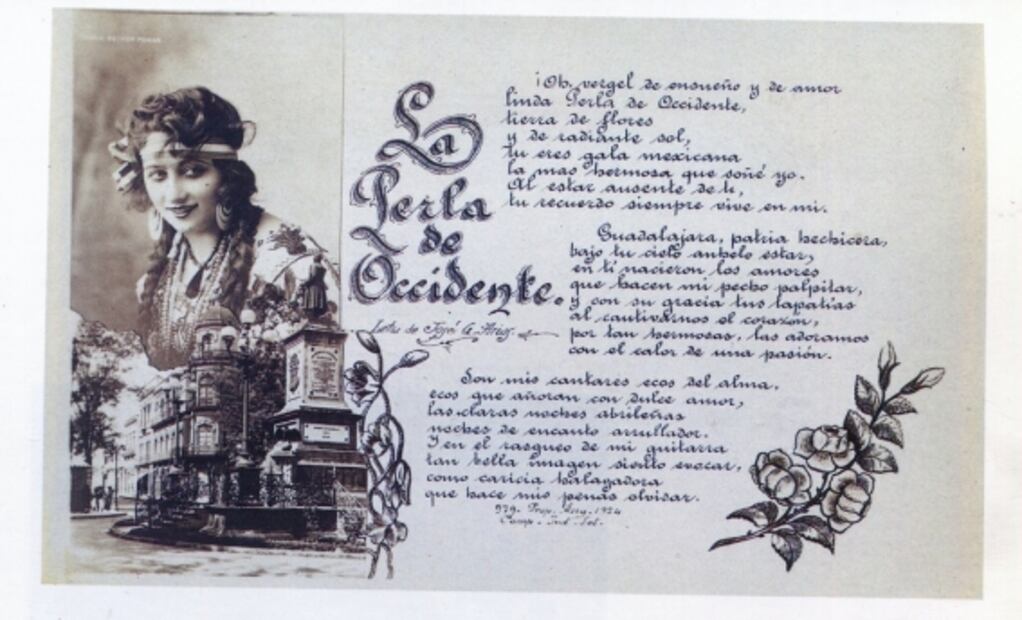 La
Perla
de
Occidente.
Letra de José G.
¡Oh, vergel de ensueño y de amor
linda Perla de Occidente,
tierra de flores
y de radiante sol,
tu eres gala mexicana
la mas hermosa que soñé yo.
Al estar ausente de ti,
tu recuerdo siempre vive en mi.
Guadalajara, patria hechicera,
bajo tu cielo anhelo estar,
en ti nacieron los amores
que hacen mi pecho palpitar,
y con su gracia tus tapatías
al cautivarnos el corazón,
por tan hermosas, las adoramos
con el calor de una pasión.
Son mis cantares ecos del alma,
ecos que añoran con dulce amor,
las claras noches abrileñas
noches de encanto arrullador.
Y en el rasgueo de mi guitarra
tan bella imagen siento evocar,
como caricia halagadora
que hace mis penas olvidar.
979. Prop. Arq. 1924
Comp. Ind. Fot.